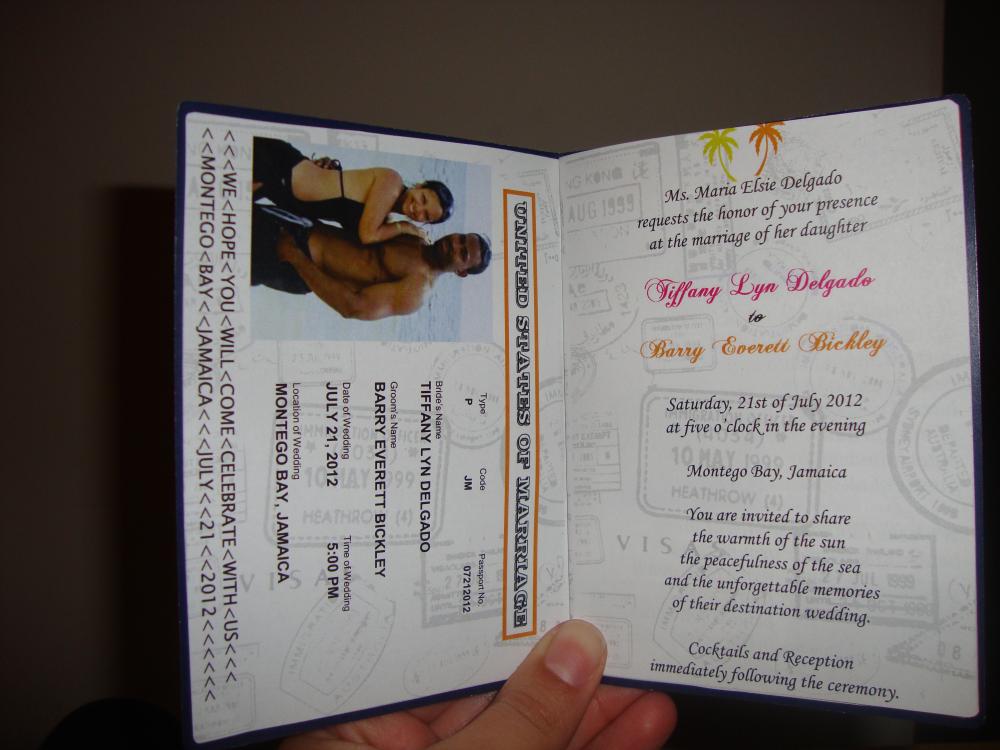 UNITED STATES OF MARRIAGE
Type Code Passport No.
P JM 07212012
Bride's Name
TIFFANY LYN DELGADO
Groom's Name
BARRY EVERETT BICKLEY
Date of Wedding Time of Wedding
JULY 21, 2012 5:00 PM
Location of Wedding
MONTEGO BAY, JAMAICA
<<<WE<HOPE<YOU<WILL<COME<CELEBRATE<WITH<US<<<
<<MONTEGO<BAY<<JAMAICA<<JULY<<21<<2012<<<<<<<
Ms. Maria Elsie Delgado
requests the honor of your presence
at the marriage of her daughter
Tiffany Lyn Delgado
to
Barry Everett Bickley
Saturday, 21st of July 2012
at five o'clock in the evening
Montego Bay, Jamaica
You are invited to share
the warmth of the sun
the peacefulness of the sea
and the unforgettable memories
of their destination wedding.
Cocktails and Reception
immediately following the ceremony.
AUG 1999
10 MAY 1999
HEATHROW (4)
VISA
10 MAY 1999
HEATHROW (4)
VISA